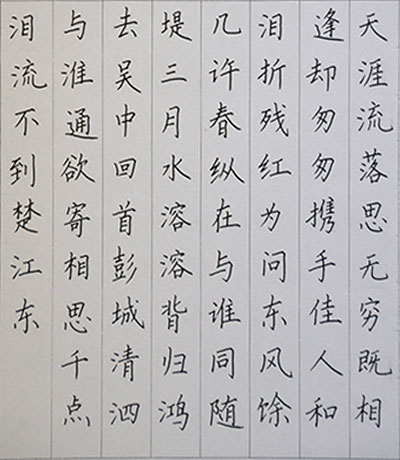 天涯流落思无穷既相
逢却匆匆携手佳人和
泪折残红为问东风馀
几许春纵在与谁同随
堤三月水溶溶背归鸿
去吴中回首彭城清泗
与淮通欲寄相思千点
泪流不到楚江东